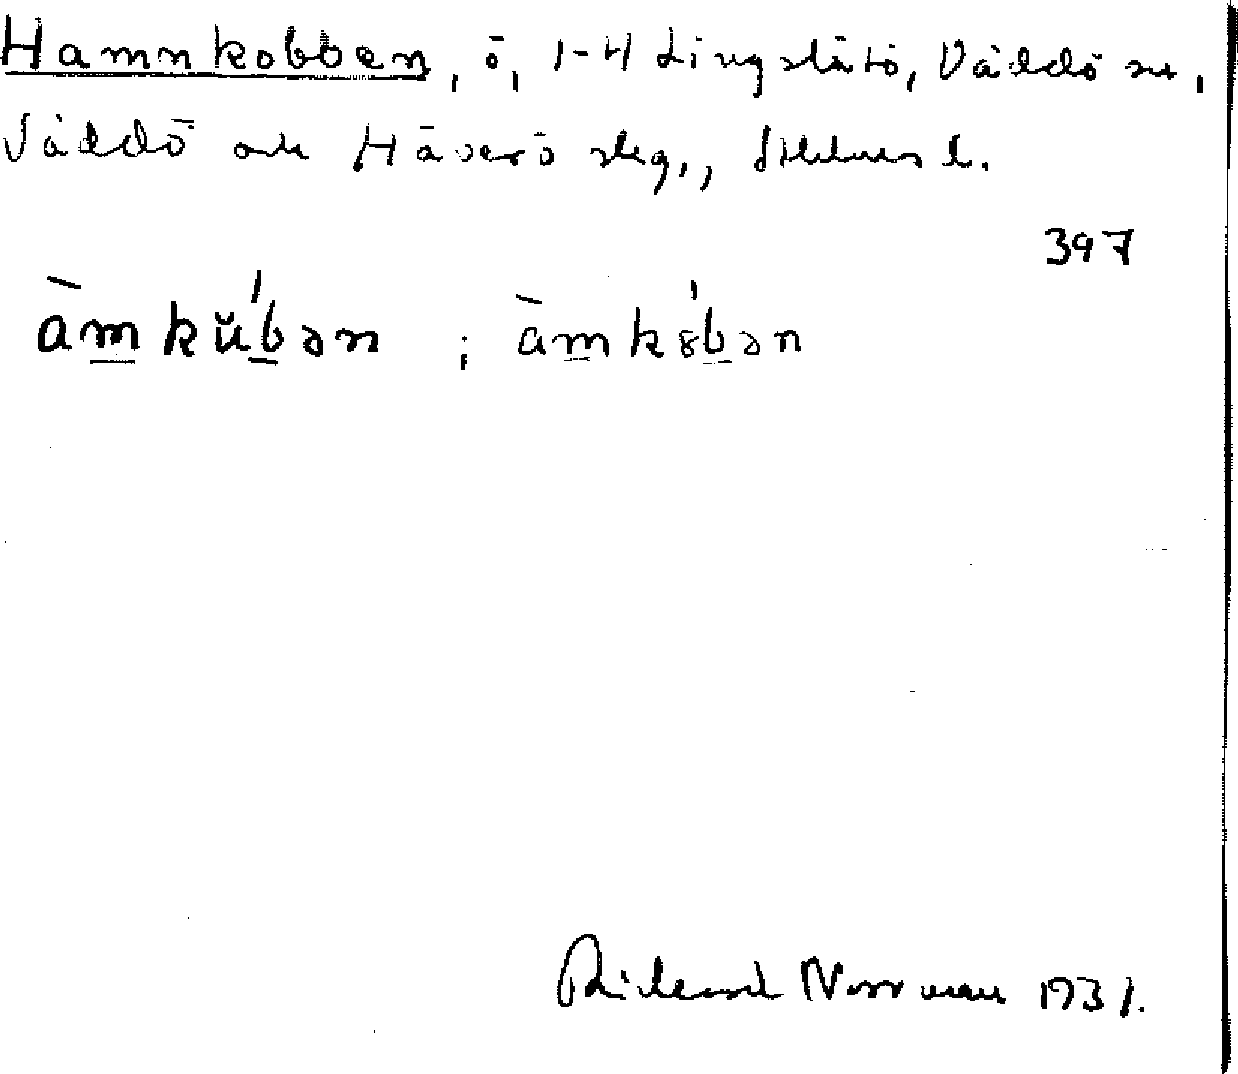 Hamnkobben, ö, 1-4 Lingslätö, Väddö sn,
Väddö och Häverö skg., Sthlms l.
397
àmkŭ́bən ; àmkó̤bən
Rickard Norrman 1931.